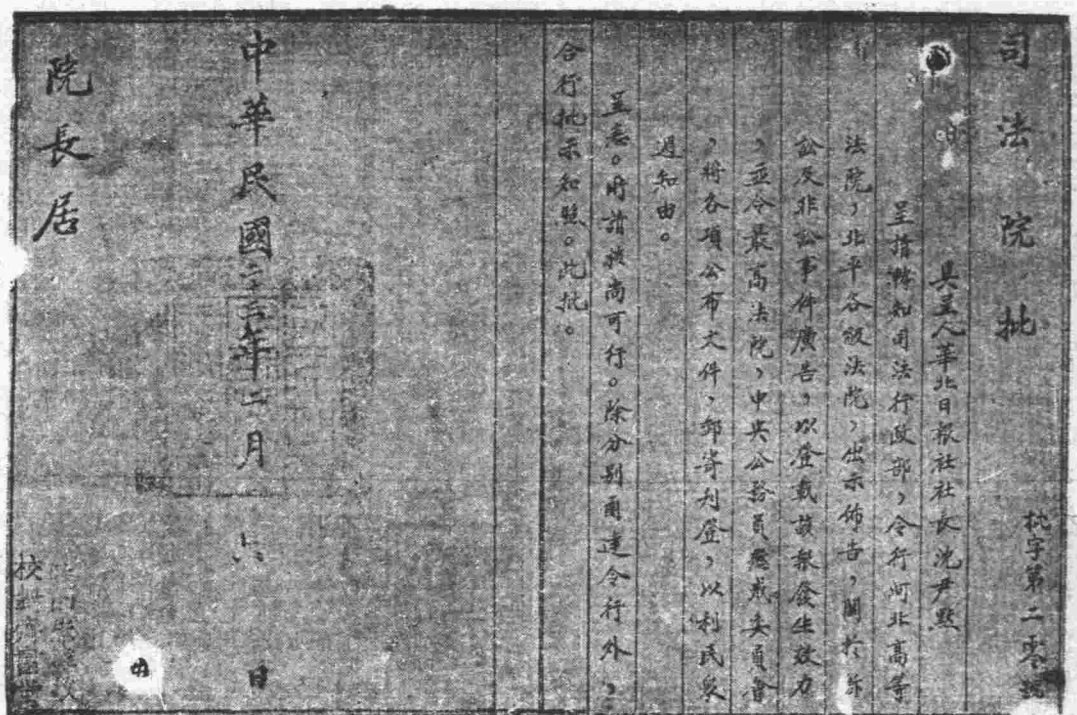 司法院批
批字第二零號
具呈人華北日報社社長沈尹默
呈請轉知司法行政部,令行河北高等
法院,北平各級法院,出示佈告,關於訴
訟及非訟事件廣告,以登載該報發生效力
,並令最高法院,中央公務員懲戒委員會
,將各項公布文件,郵寄刊登,以利民眾
週知由。
呈悉。所請尚可行。除分別函達令行外,
合行批示知照。此批。
中華民國二十三年二月六日
院長居
校對